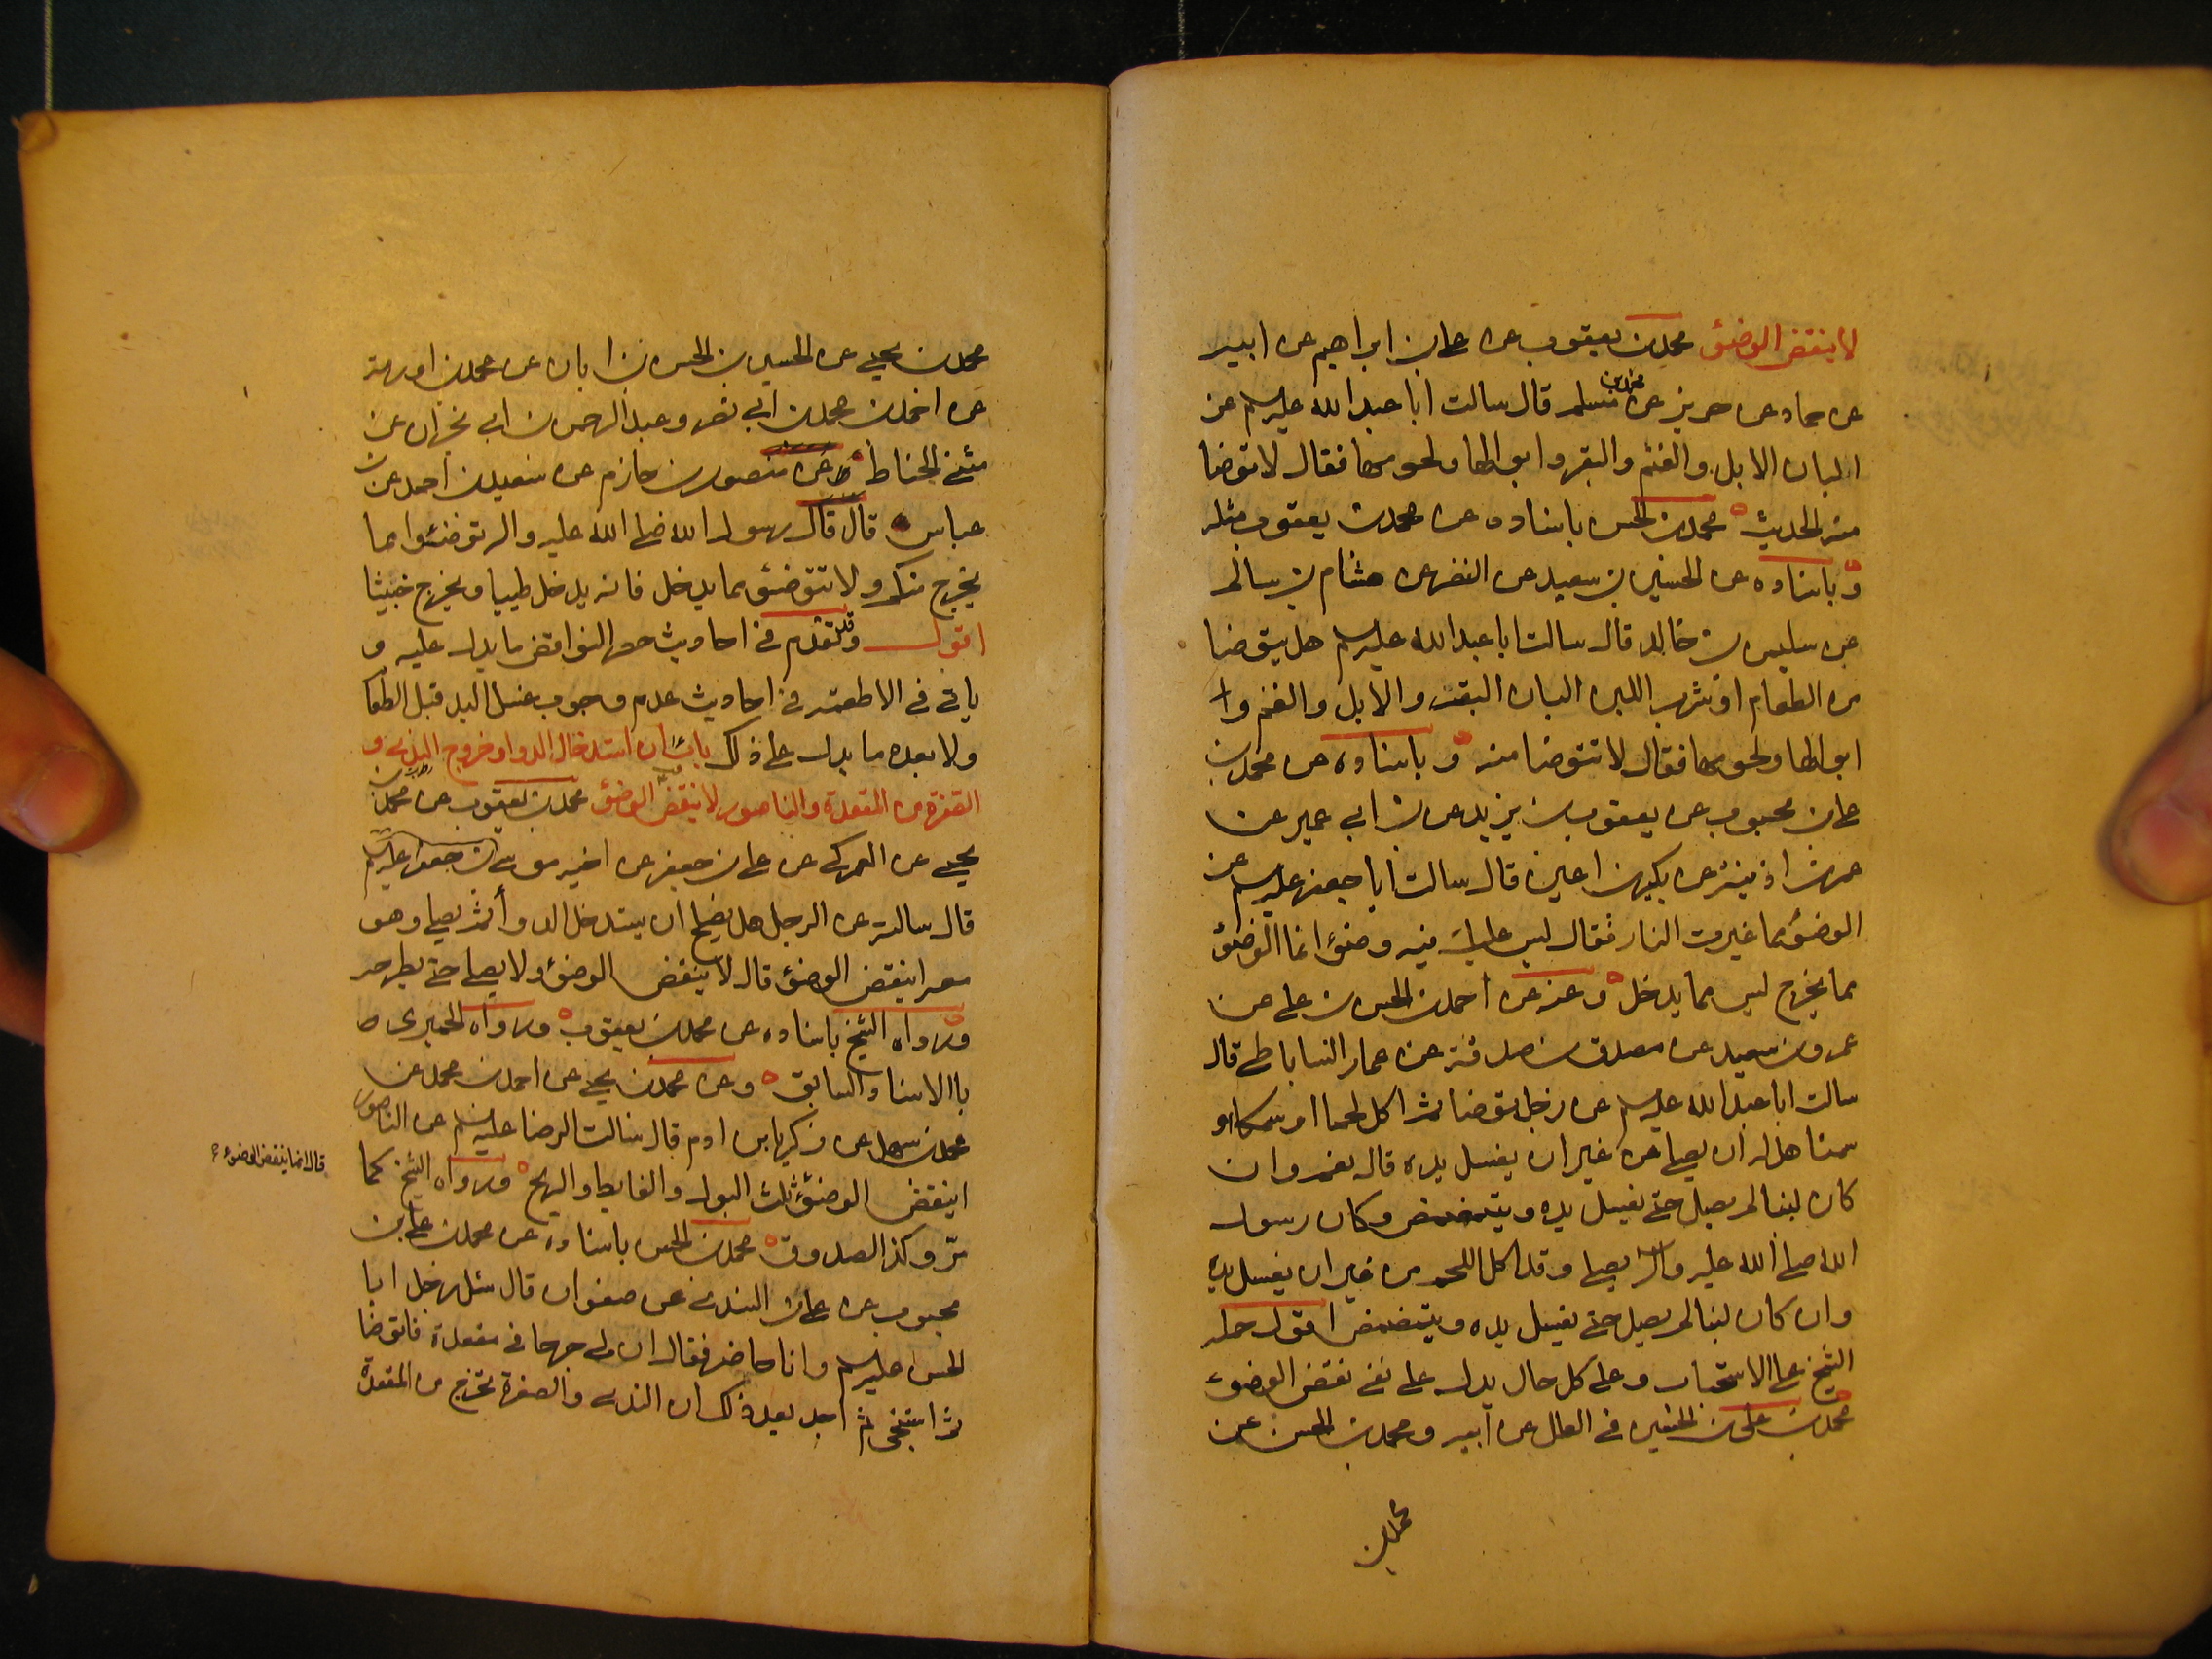 لا ينقض الوضوء محمد بن يعقوب عن علي بن ابراهيم عن ابيه
عن حماد عن حريز عن محمد بن مسلم قال سالت ابا عبدالله عليه السلم عن
البان الابل والغنم والبقر وابوالها ولحومها فقال لا توضا
منه الحديث محمد بن الحسن باسناده عن محمد بن يعقوب مثله
وباسناده عن الحسين بن سعيد عن النضر عن هشام بن سالم
عن سليمن بن خالد قال سالت ابا عبدالله عليه السلم هل يتوضا
من الطعام او شرب اللبن البان البقر والابل والغنم و
ابوالها ولحومها فقال لا تتوضا منه وباسناده عن محمد بن
علي بن محبوب عن يعقوب بن يزيد عن ابن ابي عمير عن
عمر بن اذينة عن بكير بن اعين قال سالت ابا جعفر عليه السلم عن
الوضوء مما غيرت النار فقال ليس عليك فيه وضوء انما الوضوء
مما يخرج ليس مما يدخل وعنه عن احمد بن الحسن بن علي عن
عمرو بن سعيد عن مصدق بن صدقة عن عمار الساباطي قال
سالت ابا عبدالله عليه السلم عن رجل توضا ثم اكل لحما او سمكا او
سمنا هل له ان يصلي من غير ان يغسل يده قال نعم وان
كان لبنا لم يصل حتى يغسل يده ويتمضمض وكان رسول
الله صلى الله عليه واله يصلي وقد اكل اللحم من غير ان يغسل يده
وان كان لبنا لم يصل حتى يغسل يده ويتمضمض اقول حمله
الشيخ على الاستحباب وعلى كل حال يدل على نفي نقض الوضوء
محمد بن علي بن الحسين في العلل عن ابيه ومحمد بن الحسن عن
محمد بن
محمد بن يحيى عن الحسين بن الحسن بن ابان عن محمد بن اورمة
عن احمد بن محمد بن ابي نصر وعبد الرحمن بن ابي نجران عن
مثنى الحناط عن منصور بن حازم عن سعيد بن احمد عن ابن
عباس قال قال رسول الله صلى الله عليه واله توضئوا مما
يخرج منكم ولا تتوضئوا مما يدخل فانه يدخل طيبا ويخرج خبيثا
اقول وقد تقدم في احاديث حصر النواقض ما يدل عليه و
ياتي في الاطعمة في احاديث عدم وجوب غسل اليد قبل الطعام
ولا بعده ما يدل على ذلك باب ان استدخال الدواء وخروج الندى و
الصفرة من المقعدة والناصور لا ينقض الوضوء محمد بن يعقوب عن محمد بن
يحيى عن العمركي عن علي بن جعفر عن اخيه موسى بن جعفر عليه السلم
قال سالته عن الرجل هل يصلح ان يستدخل الدواء ثم يصلي وهو
معه اينقض الوضوء قال لا ينقض الوضوء ولا يصلي حتى يطرحه
ورواه الشيخ باسناده عن محمد بن يعقوب ورواه الحميري
باالاسناد السابق وعن محمد بن يحيى عن احمد بن محمد عن
محمد بن سهل عن زكريا بن ادم قال سالت الرضا عليه السلم عن الناصور
اينقض الوضوء ثلث البول والغايط والريح ورواه الشيخ كما
قال انما ينقض الوضوء
مر وكذا الصدوق محمد بن الحسن باسناده عن محمد بن علي بن
محبوب عن علي بن السندي عن صفوان قال سئل رجل ابا
الحسن عليه السلم وانا حاضر فقال ان لي جرحا في مقعدتي فاتوضا
ثم استنجي ثم اجد بعد ذلك الندى والصفرة تخرج من المقعدة